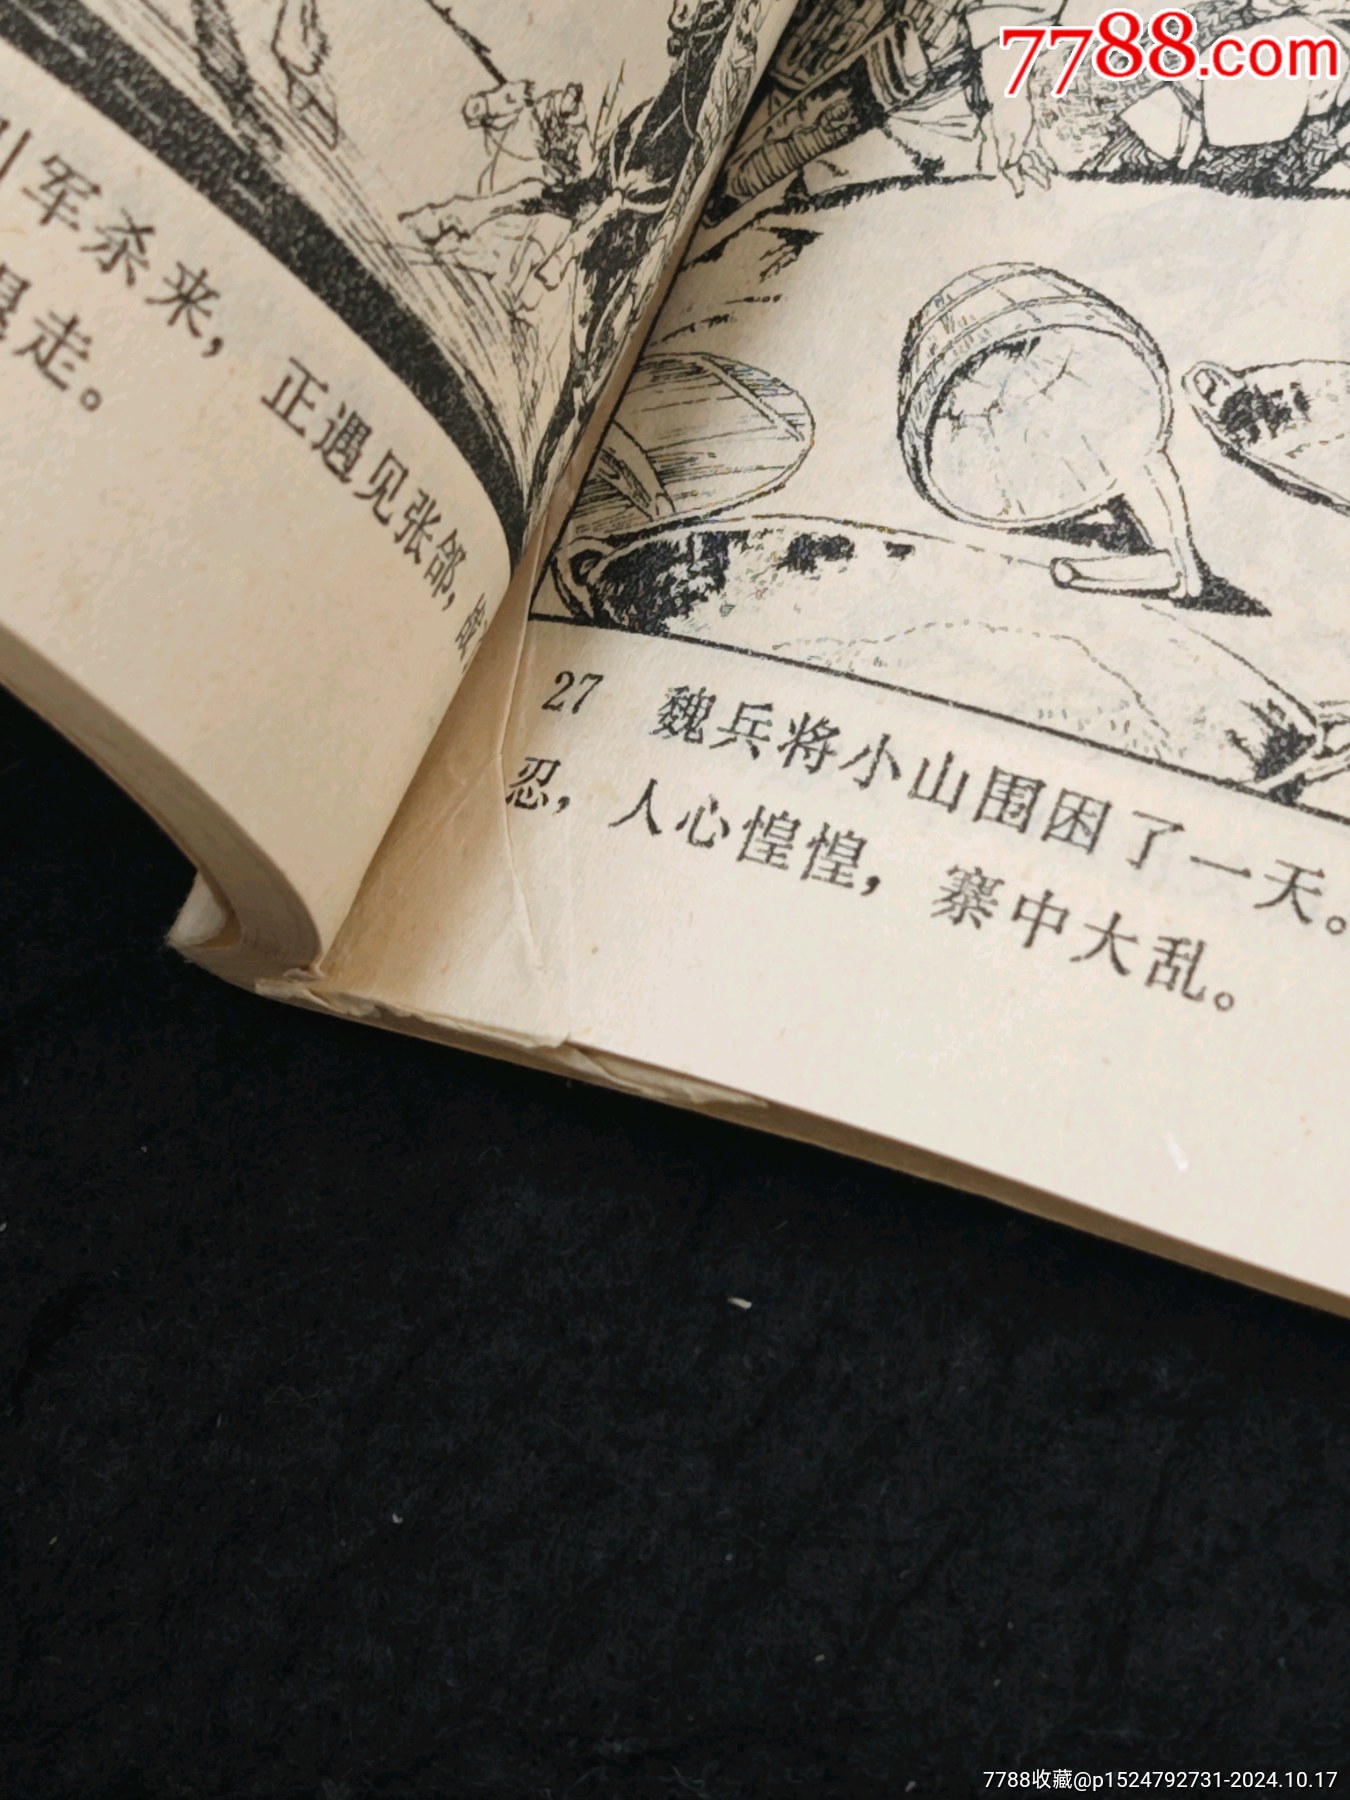 7788.com
军杀来，正遇见张郃，
走。
27 魏兵将小山围困了一天。
忍，人心惶惶，寨中大乱。
7788收藏@p1524792731-2024.10.17